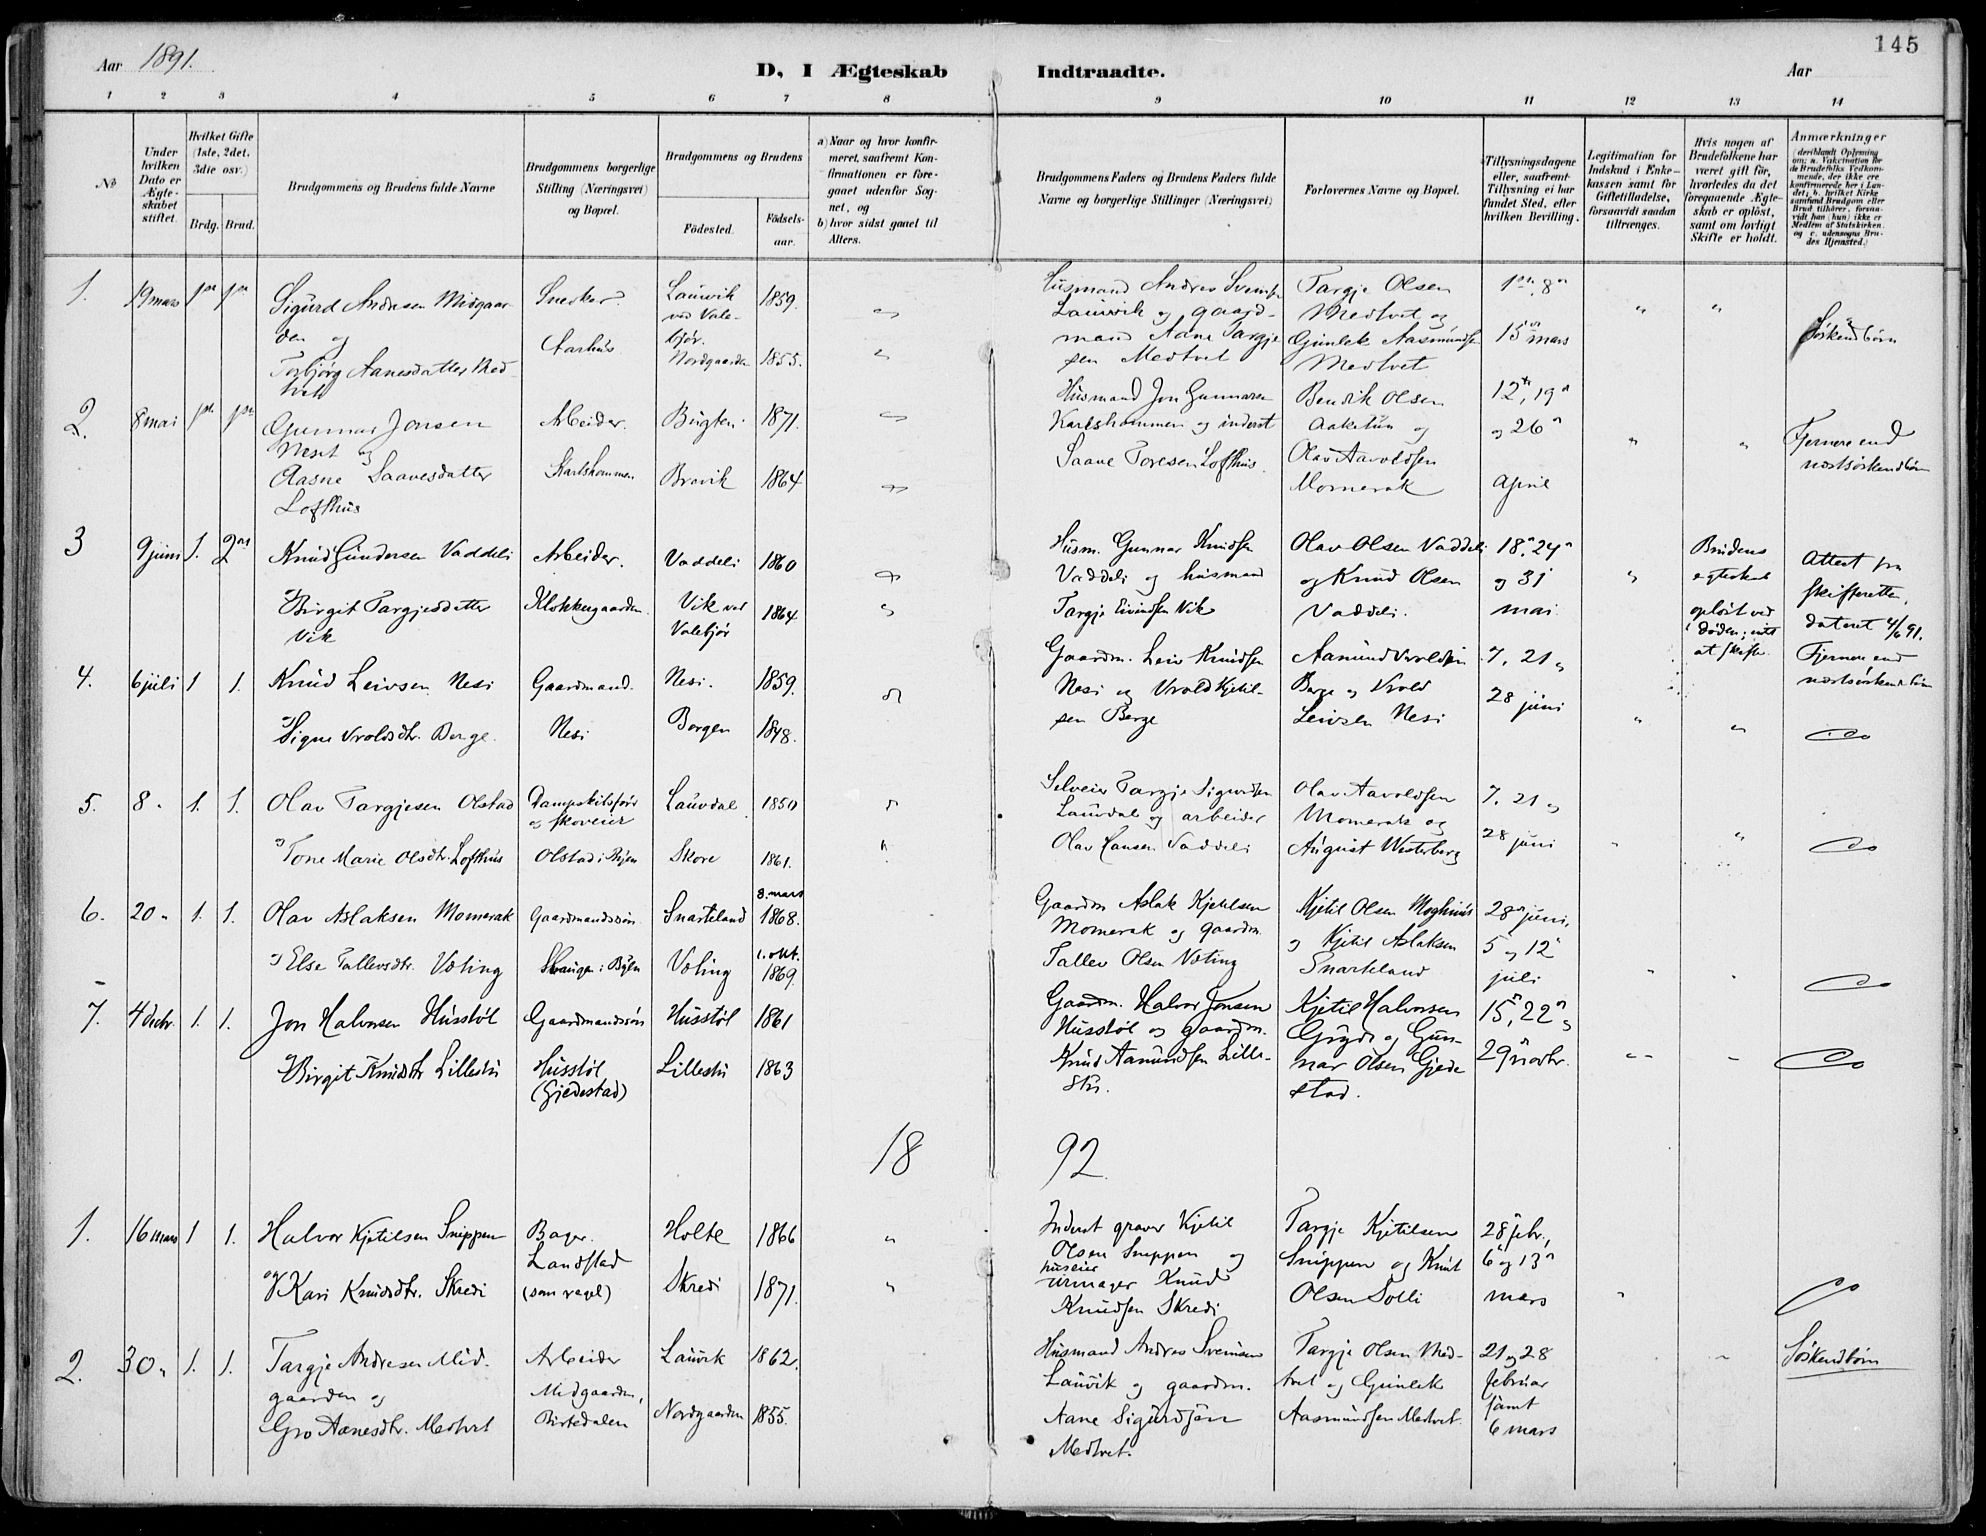 145
Aar 1891.
D, I Ægteskab Indtraadte.
Aar
1 2 3 4 5 6 7 8 9 10 11 12 13 14
No
Under hvilken Dato er Ægteskabet stiftet.
Hvilket Gifte (1ste, 2det, 3die osv.)
Brdg. Brud.
Brudgommens og Brudens fulde Navne
Brudgommens borgerlige Stilling (Næringsvei) og Bopæl.
Brudgommens og Brudens
Födested. Födsels-aar.
a) Naar og hvor konfir-
meret, saafremt Kon-
firmationen er fore-
gaaet udenfor Sog-
net, og
b) hvor sidst gaaet til
Alters.
Brudgommens Faders og Brudens Faders fulde
Navne og borgerlige Stillinger (Næringsvei)
Forlovernes Navne og Bopæl.
Tillysningsdagene
eller, saafremt
Tillysning ei har
fundet Sted, efter
hvilken Bevilling.
Legitimation for
Indskud i Enke-
kassen samt for
Giftetilladelse,
forsaavidt saadan
tiltrænges.
Hvis nogen af
Brudefolkene har
været gift för,
hvorledes da det
foregaaende Ægte-
skab er oplöst,
samt om lovligt
Skifte er holdt.
Anmærkninger
(deriblandt Oplysning
om: a. Vakcination for
de Brudefolks Vedkom-
mende, der ikke ere
konfirmerede her i Lan-
det; b. hvilket Kirke
samfund Brudgom eller
Brud tilhører, forsaa-
vidt han (hun) ikke er
Medlem af Statskirken
og c. udensogns Bru-
des Hjemsted.)
1. 19 mars 1ste 1ste Sigurd Andresen Midgaar
den og
Torbjörg Aanesdatter Med
tvet
Snedker
Aarhus
Lauvik
ved Vale-
bjør. 1859.
Nordgaarden 1855.
Husmand Andres Svensen
Lauvik og gaard-
mand Aane Targje
sen Medtvet
Targje Olsen
Medtvet og
Gunlek Aasmundsen
Medtvet
1ste, 8de
15de mars
Söskendbörn
2. 8 mai 1ste 1ste Gunnar Jonsen
Neset og
Aasne Saavesdatter
Lofthus
Arbeider.
Karlshommen
Bugten 1871.
Brovik 1864
Husmand Jon Gunnarsen
Karlshommen og inderst
Saave Toresen Lofthus.
Bendik Olsen
Aaketun og
Olav Aavoldsen
Momerak
12te, 19de
og 26de
April
Fjernere end
næstsöskendbörn
3 9 juni 1. 2den Knud Gundersen Vaddeli
Birgit Targjesdatter
Vik
Arbeider.
Klokkergaarden.
Vaddeli 1860
Vik ved
Valebjør 1864
Husm. Gunnar Knudsen
Vaddeli og husmand
Targje Eivindsen Vik
Olav Olsen Vaddeli
og Knud Olsen
Vaddeli.
18de, 24de
og 31
mai
Brudens
egteskab
oplöst ved
döden; intet
at skifte
Attest fra
skifteretten,
dateret 4/6 91.
4. 6 juli 1 1. Knud Leivsen Nesi
og Signe Vroldsdtr. Berge.
Gaardmand.
Nesi
Nesi. 1859.
Borgen 1848.
Gaardm. Leiv Knudsen
Nesi og Vrold Kjetil-
sen Berge
Aamund Vroldsen
Berge og Vrold
Leivsen Nesi
7, 21 og
28 juni
Fjernere end
næstsöskendbörn
5. 8 " 1. 1. Olav Targjesen Olstad
og Tone Marie Olsdtr. Lofthus
Dampskibsförer
og skoveier
Olstad i Byen
Lauvdal 1850
Skore 1861.
Selveier Targje Sigurdsen
Lauvdal og arbeider
Olav Hansen Vaddeli
Olav Aavoldsen
Momerak og
August Westerberg
7, 21 og
28 juni
6. 20 " 1. 1. Olav Aslaksen Momerak
og Else Tallevsdtr. Veting
Gaardmandssön
Strauger i Byen
Snarteland 8. mars
1868.
Veting 1. okt.
1869.
Gaardm Aslak Kjetilsen
Momerak og gaardm.
Tallev Olsen Veting
Kjetil Olsen Moghus
og Kjetil Aslaksen
Snarteland
28de juni,
5 og 12
juli
7. 4 decbr. 1. 1. Jon Halvorsen Husstöl
og Birgit Knudsdtr Lillestu
Gaardmandssön
Husstöl
(Gjedestad)
Husstöl 1861
Lillestu 1863
Gaardm. Halvor Jonsen
Husstöl og gaardm.
Knud Aamundsen Lille-
stu.
Kjetil Halvorsen
Gryde og Gun-
nar Olsen Gjede
stad.
15, 22de og
29 novbr.
18 92
1. 16 mars 1 1. Halvor Kjetilsen Snippen
og Kari Knudsdtr. Skredi
Bager.
Landstad
(som regel)
Holte 1866
Skredi 1871.
Inderst graver Kjetil
Olsen Snippen og
huseier
urmager Knud
Knudsen Skredi
Targje Kjetilsen
Snippen og Knut
Olsen Solli
28de febr.,
6 og 13de
mars
2. 30 " 1. 1. Targje Andresen Mid-
gaarden og
Gro Aanesdtr. Medtvet
Arbeider
Midgaarden,
Birtedalen
Lauvik 1862.
Nordgaarden 1855.
Husmand Andres Svensen
Lauvik og gaardm.
Aane Sigurdsen
Medtvet.
Targje Olsen Med-
tvet og Gunlek
Aasmundsen Medtvet.
21 og 28
februar
samt
6 mars
Söskendbörn